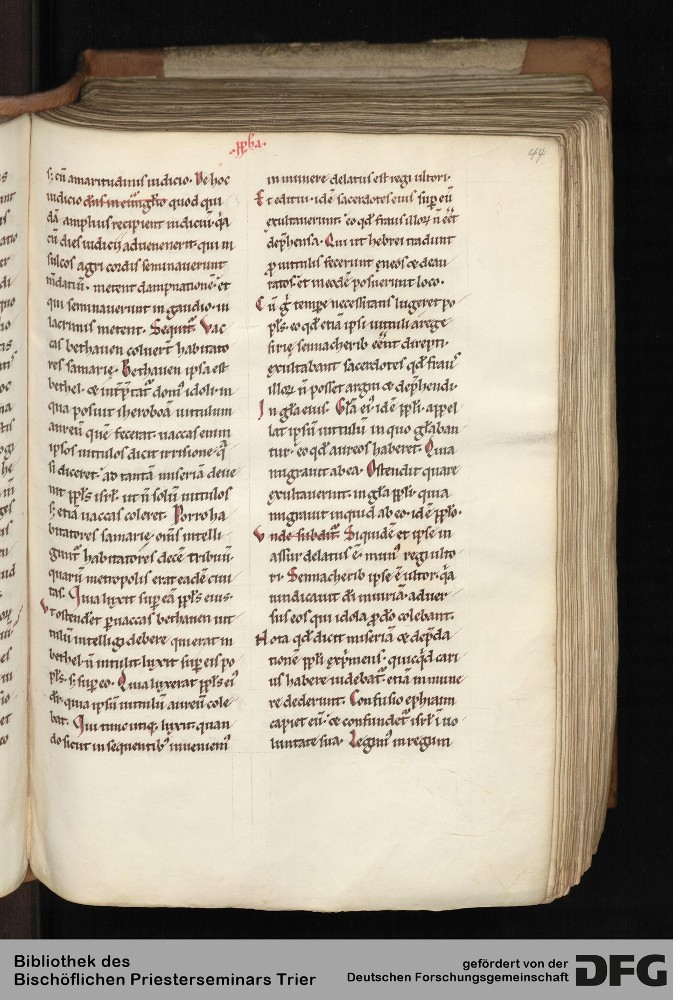 ·ppha·
44
s; cū amaritudinis iudicio. De hoc
iudicio dn̄s in euuanglio quod qui
dā amplius recipient iudiciū. q̄a
cū dies iudicii aduenerit. qui in
sulcos agri cordis seminauerunt
metent dampnationē. et
qui seminauerunt in gaudio. in
lacrimis metent. Sequit᷑. Vac
cas bethauen coluert̄ habitato
res samarię. Bethauen ipsa est
bethel. ꝫ int̄p̄tat᷑ domꝰ idoli. in
qua posuit iheroboā uitulum
aureū quē fecerat. uaccas enim
ipsos uitulos dicit irrisione. q̄
si diceret. ad tantā miseriā deue
nit ppl̄s isrl̄. ut n̄ solū uitulos
s; etiā uaccas coleret. Porro ha
bitatores samarie. om̄s intelli
gim᷑ habitatores decē tribuū.
quarū metropolis erat eadē ciui
tas. Quia luxit sup eā ppl̄s eius.
Vt ostend̄et p uaccas bethauen uit
tulū intelligi debere qui erat in
bethel. n̄ intulit luxit sup eis po
pl̄s. s; sup eo. Quia luxerat ppl̄s eiꝰ
dr̄. quia ipsū uitulū aureū cole
bat. Qui tunc utiq; luxit. quan
do sicut in sequentibꝰ inueniemꝰ
in munere delatus est regi ultori.
Et editui. idē sacerdotes eius sup eū
exultauerunt eo qd̄ fraus illoꝝ n̄ eēt
dep̄hensa. Qui ut hebrei tradunt
ꝓ uitulis fecerunt eneos ꝫ deau
ratos. et in eodē posuerunt loco.
Cū g̊ tempe necessitatis lugeret po
pl̄s. eo qd̄ etiā ipsi uituli a rege
sirię sennacherib eēnt direpti.
exultabant sacerdotes qd̄ frausͤ
illoꝝ n̄ posset argui ꝫ dep̄hendi.
In gl̄a eius. Gl̄a eiꝰ idē ppl̄i. appel
lat ipsū uitulū in quo gl̄aban
tur. eo qd̄ aureos haberet. Quia
migrauit ab ea. Ostendit quare
exultauerunt. in gl̄a ppl̄i. quia
migrauit inquid ab eo. idē ppl̄o.
Vnde subdit᷑. Siquidē et ipse in
assur delatus ē. munꝰ regi ulto
ri. Sennacherib ipse ē ultor. q̄a
uindicauit dī iniuriā. aduer
sus eos qui idola ꝓ dō colebant.
Nota qd̄ dicit miseriā ꝫ dep̄da
tionē ppl̄i exp̄mens. quicq̄d cari
us habere uidebat᷑. etiā in mune
re dederunt. Confusio ephraim
capiet eū. ꝫ confundet᷑ isrl̄ ī uo
luntate sua. Legimꝰ in regum
Bibliothek des
Bischöflichen Priesterseminars Trier
gefördert von der
Deutschen Forschungsgemeinschaft
DFG